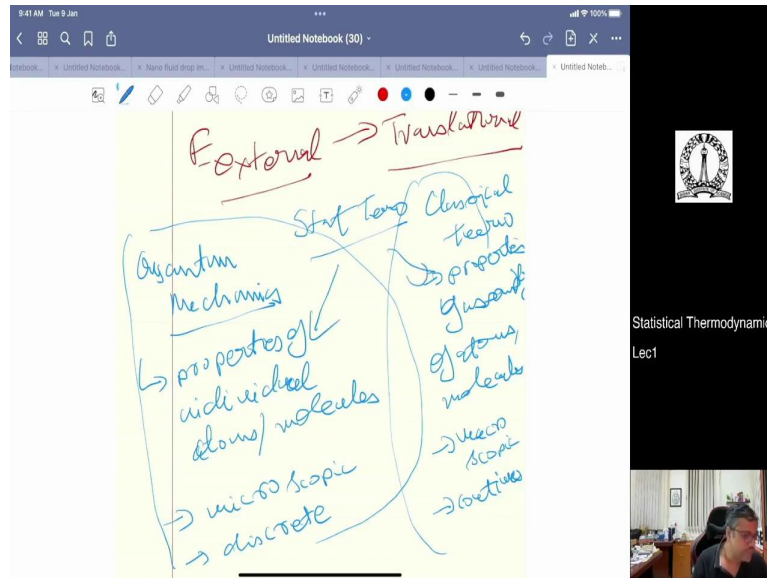 9:41 AM Tue 9 Jan
100%
Untitled Notebook (30)
otebook...
× Untitled Notebook...
× Nano fluid drop im...
× Untitled Notebook...
× Untitled Notebook...
× Untitled Notebook...
× Untitled Notebook...
× Untitled Noteb...
E external → Translational
Stat
Quantum
Mechanics
↳ properties of
individual
atoms/molecules
→ microscopic
→ discrete
Classical
→ properties
of atoms,
molecules
→ macro
scopic
Statistical Thermodynamic
Lec1